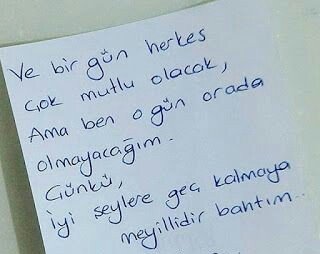 Ve bir gün herkes
çok mutlu olacak,
Ama ben o gün orada
olmayacağım.
Günkü,
iyi şeylere geç kalmaya
meyillidir bahtım..